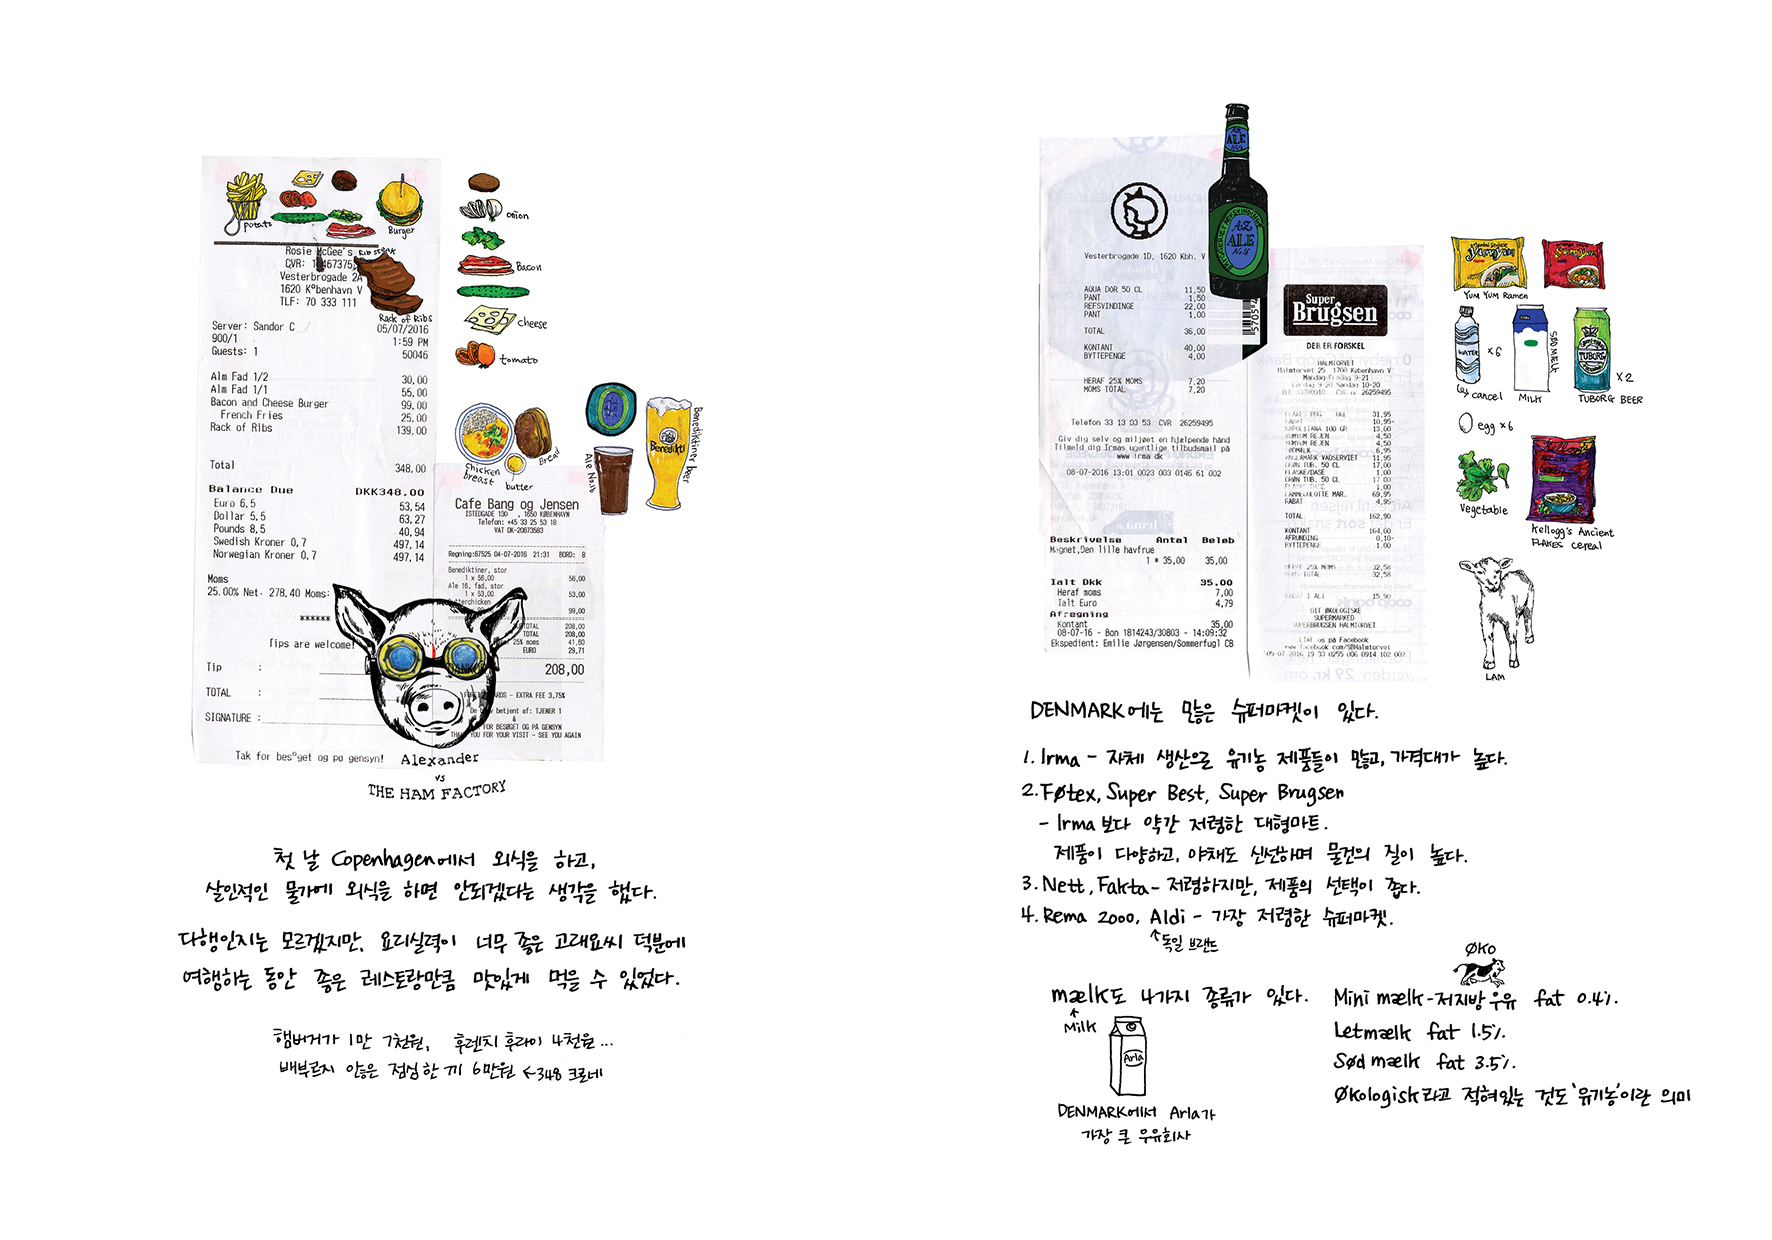 potato
Burger
onion
Bacon
cheese
tomato
Rosie McGee's
RIB STEAK
CVR:
Vesterbrogade 2A
1620 K°benhavn V
TLF: 70 333 111
Rack of Ribs
Server: Sandor C 05/07/2016
900/1 1:59 PM
Guests: 1 50046
Alm Fad 1/2 30,00
Alm Fad 1/1 55,00
Bacon and Cheese Burger 99,00
French Fries 25,00
Rack of Ribs 139,00
Total 348,00
Balance Due DKK348,00
Euro 6,5 53,54
Dollar 5,5 63,27
Pounds 8,5 40,94
Swedish Kroner 0,7 497,14
Norwegian Kroner 0,7 497,14
Moms
25.00% Net. 278,40 Moms:
******
Tips are welcome!
Tip :
TOTAL :
SIGNATURE :
Tak for bes°get og pø gensyn!
chicken breast
butter
Bread
Ale No.16
Benediktiner beer
Benedikti
Cafe Bang og Jensen
ISTEDGADE 130 , 1650 KØBENHAVN
Telefon: +45 33 25 53 18
VAT DK-20673583
Regning:67525 04-07-2016 21:31 BORD: 8
Benediktiner, stor
1 x 56,00 56,00
Ale 16, fad, stor
1 x 53,00 53,00
99,00
TOTAL 208,00
TOTAL 208,00
25% moms 41,60
EURO 29,71
208,00
- EXTRA FEE 3,75%
betjent af: TJENER 1
&
FOR BESØGET OG PÅ GENSYN
YOU FOR YOUR VISIT - SEE YOU AGAIN
Alexander
vs
THE HAM FACTORY
첫 날 Copenhagen에서 외식을 하고,
살인적인 물가에 외식을 하면 안되겠다는 생각을 했다.
다행인지는 모르겠지만, 요리실력이 너무 좋은 고래요씨 덕분에
여행하는 동안 좋은 레스토랑만큼 맛있게 먹을 수 있었다.
햄버거가 1만 7천원, 후렌치 후라이 4천원...
배부르지 않은 점심 한 끼 6만원 ←348 크로네
Vesterbrogade 1D, 1620 Kbh. V
AQUA DOR 50 CL 11,50
PANT 1,50
REFSVINDINGE 22,00
PANT 1,00
TOTAL 36,00
KONTANT 40,00
BYTTEPENGE 4,00
HERAF 25% MOMS 7,20
MOMS TOTAL 7,20
Telefon 33 13 03 53 CVR 26259495
Giv dig selv og miljøet en hjælpende hånd
Tilmeld dig Irmas ugentlige tilbudsmail på
www.irma.dk
08-07-2016 13:01 0023 003 0146 61 002
Beskrivelse Antal Beløb
Magnet,Den lille havfrue
1 * 35,00 35,00
Ialt Dkk 35.00
Heraf moms 7,00
Ialt Euro 4,79
Afregning
Kontant 35,00
08-07-16 - Bon 1814243/30803 - 14:09:32
Ekspedient: Emilie Jørgensen/Sommerfugl CB
ALE
A-Z
ALE
No 16
Super
Brugsen
DER ER FORSKEL
HALMTORVET
Halmtorvet 25 1700 København V
Mandag-Fredag 9-21
Lørdag 9-20 Søndag 10-20
CVR 26259495
31,95
RABAT 10,95-
NAPOLITANA 100 GR 13,00
YUMYUM REJEN 4,50
YUMYUM REJEN 4,50
6,95
ÄNGLAMARK VADSERVIET 11,95
GRØN TUB. 50 CL 17,00
FLASKE/DASE 1,00
GRØN TUB. 50 CL 17,00
1,00
69,95
RABAT 4,95-
TOTAL 162,90
KONTANT 164,00
AFRUNDING 0,10-
BYTTEPENGE 1,00
HERAF 25% MOMS 32,58
MOMS TOTAL 32,58
RABAT I ALT 15,90
DIT ØKOLOGISKE
SUPERMARKED
SUPERBRUGSEN HALMTORVET
LIKE os på Facebook
www.facebook.com/SBHalmtorvet
05-07-2016 19 33 0255 006 0914 102 002
YumYum
YUM YUM Ramen
WATER
×6
cancel
MILK
SØDMÆLK
TUBORG
×2
TUBORG BEER
egg ×6
Vegetable
Kellogg's Ancient
FLAKES cereal
LAM
DENMARK에는 많은 슈퍼마켓이 있다.
1. Irma - 자체 생산으로 유기농 제품들이 많고, 가격대가 높다.
2. Føtex, Super Best, Super Brugsen
- Irma 보다 약간 저렴한 대형마트.
제품이 다양하고, 야채도 신선하며 물건의 질이 높다.
3. Nett, Fakta - 저렴하지만, 제품의 선택이 좁다.
4. Rema 2000, Aldi - 가장 저렴한 슈퍼마켓.
↑독일 브랜드
mælk도 4가지 종류가 있다.
↑
Milk
Arla
DENMARK에서 Arla가
가장 큰 우유회사
ØKO
Mini mælk - 저지방 우유 fat 0.4%.
Letmælk fat 1.5%.
Sød mælk fat 3.5%.
Økologisk라고 적혀있는 것도 '유기농'이란 의미